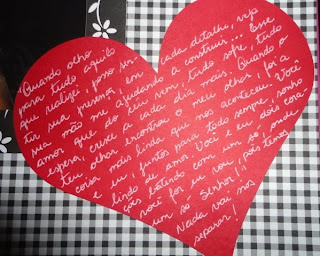 Quando olho
para tudo aquilo
que realizei, posso sen-
tir sua presença em cada detalhe, vejo
sua mão me ajudando a construir... Esse
amor que do céu vem, tudo sofre, tudo
espera, cresce a cada dia mais. Quando o
teu olhar encontrou o meu olhar, foi a
coisa mais linda que nos aconteceu. Você
e eu, juntos para todo sempre, sonho
lindo de amor. Você e eu, dois cora-
ções batendo com um só, onde
você for eu vou, pois temos
um só Senhor!
Nada vai nos
separar!